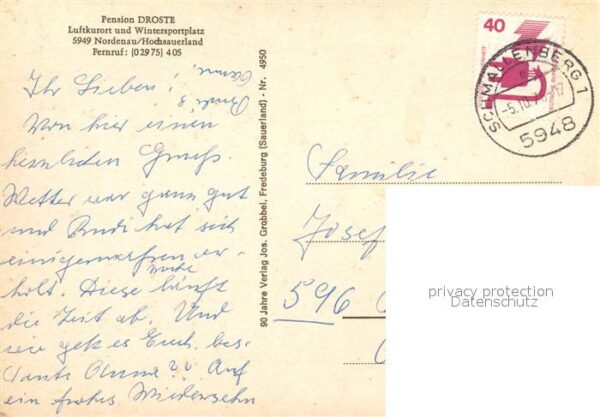 Pension DROSTE
Luftkurort und Wintersportplatz
5949 Nordenau/Hochsauerland
Fernruf: (0 29 75) 4 05
Ihr Lieben!
Von hier einen
herzlichen Gruß.
Wetter war ganz gut
und Rudi hat sich
einigermaßen er-
holt. Diese Woche läuft
die Zeit ab. Und
wie geht es Euch, bes.
Tante Anna?? Auf
ein frohes Wiedersehn
Rudi &
90 Jahre Verlag Jos. Grobbel, Fredeburg (Sauerland) - Nr. 4950
40
SCHMALLENBERG 1
5948
Familie
Josef
596
privacy protection
Datenschutz